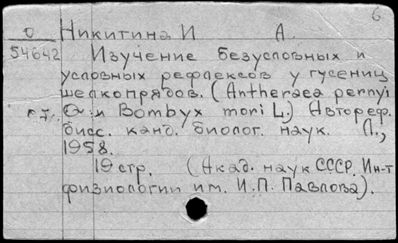 б
О Никитина И А.
54642 Изучение безусловных и
условных рефлексов у гусениц
шелкопрядов. (Antheraea pernyi
и Bombyx mori L.) Автореф.
дисс. канд. биолог. наук. Л.,
1958.
19 стр. (Акад. наук СССР. Ин-т
физиологии им. И.П. Павлова).